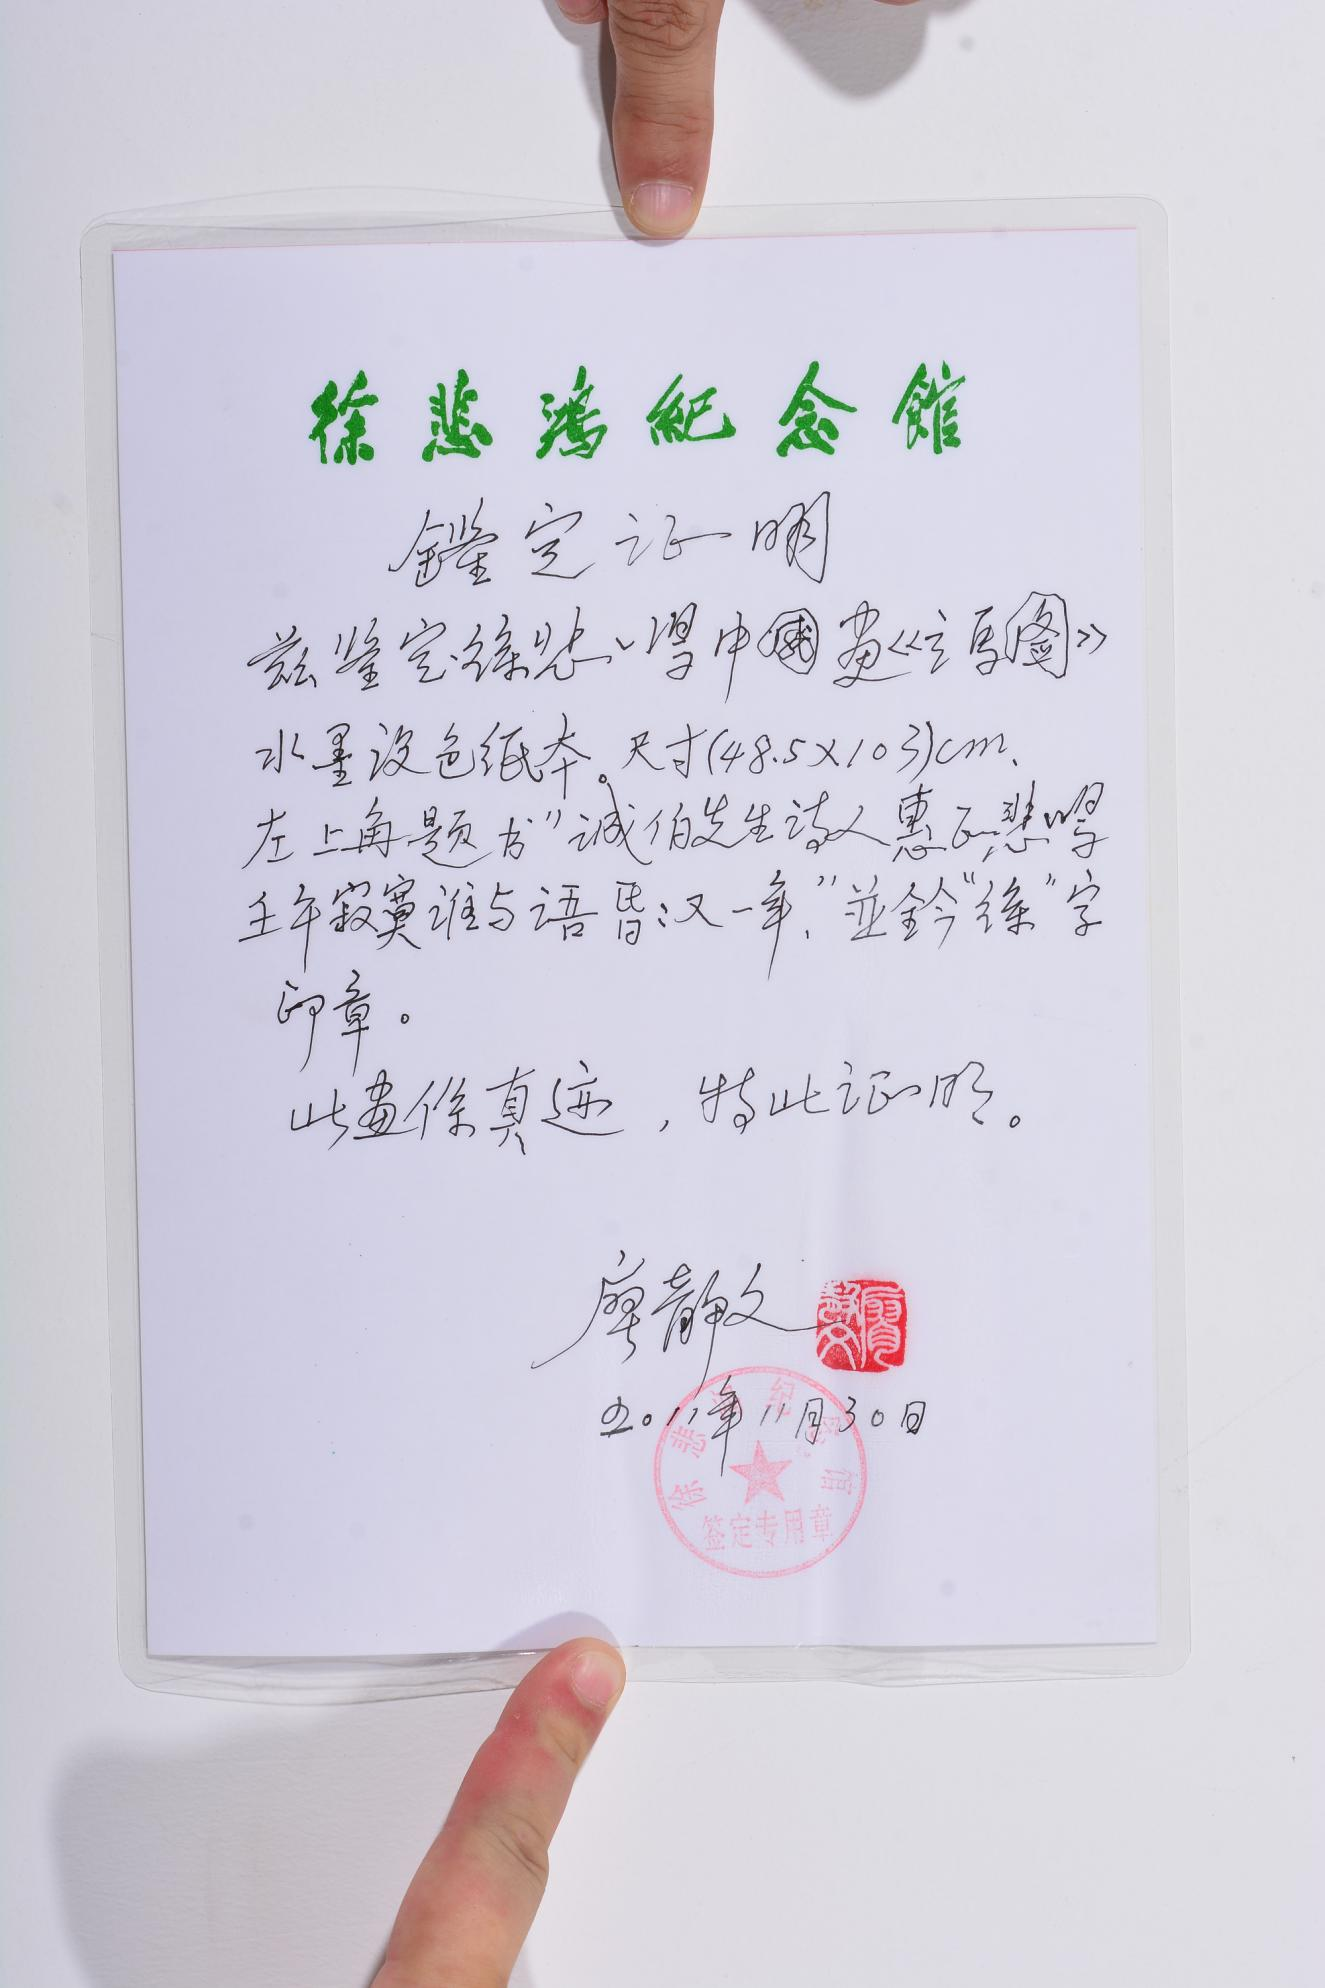 徐悲鸿紀念館
鑑定证明
兹鉴定徐悲鸿中國画《立马图》
水墨设色纸本。尺寸(48.5×103)cm.
左上角题书"诚伯先生诗人惠正,悲鸿
壬午寂寞谁与语昏又一年,"並钤"徐"字
印章。
此畫係真迹,特此证明。
廖静文
廖静文
2011年11月30日
徐悲鸿纪念馆
签定专用章